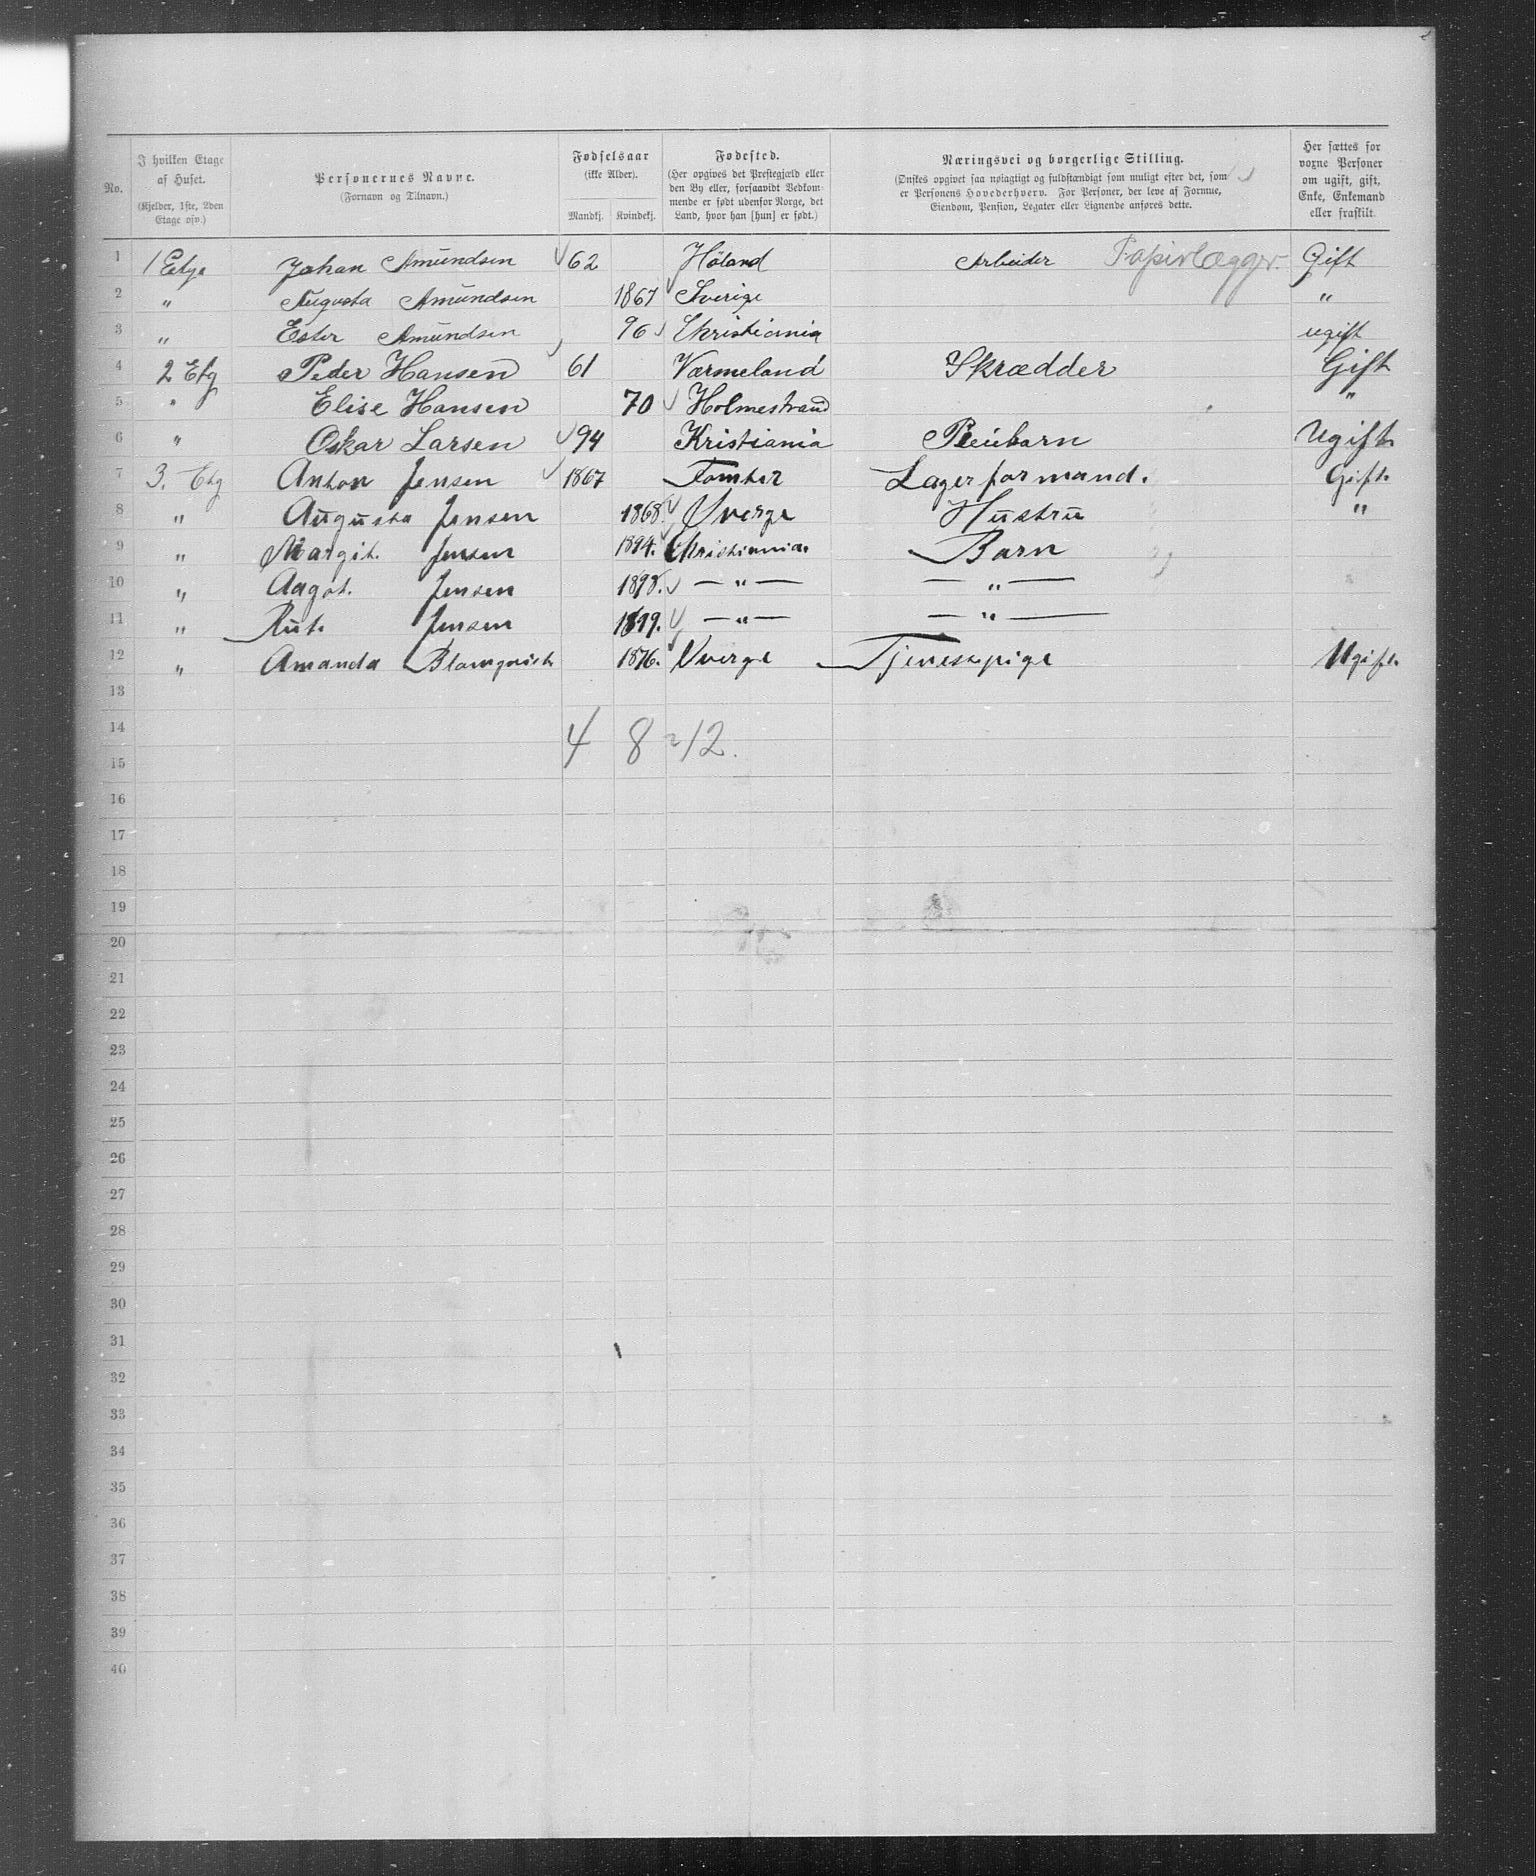 No.
I hvilken Etage af Huset. (Kjelder, 1ste, 2den Etage osv.)
Personernes Navne. (Fornavn og Tilnavn.)
Fødselsaar (ikke Alder). Mandkj. Kvindekj.
Fødested. (Her opgives det Prestegjæld eller den By eller, forsaavidt Vedkommende er født udenfor Norge, det Land, hvor han [hun] er født.)
Næringsvei og borgerlige Stilling. (Ønskes opgivet saa nøiagtigt og fuldstændigt som muligt efter det, som er Personens Hovederhverv. For Personer, der leve af Formue, Eiendom, Pension, Legater eller Lignende anføres dette.
Her sættes for voxne Personer om ugift, gift, Enke, Enkemand eller fraskilt.
1 1 Etge Johan Amundsen 62 Höland Arbeider Papirlægger. Gift
2 " Augusta Amundsen 1867 Sverige "
3 " Ester Amundsen 96 Christiania ugift
4 2 Etg Peder Hansen 61 Værmeland Skrædder Gift
5 " Elise Hansen 70 Holmestrand "
6 " Oskar Larsen 94 Kristiania Pleiebarn Ugift
7 3. Etg Anton Jensen 1867 Tomter Lagerformand. Gift.
8 " Augusta Jensen 1868. Sverge Hustru "
9 " Margit. Jensen 1894. Christiania. Barn
10 " Aagot. Jensen 1898. — " — — " —
11 " Rut. Jensen 1899. — " — — " —
12 " Amanda Blomqvist 1876. Sverge Tjenestpige Ugift.
13
14 4 8 = 12.
15
16
17
18
19
20
21
22
23
24
25
26
27
28
29
30
31
32
33
34
35
36
37
38
39
40